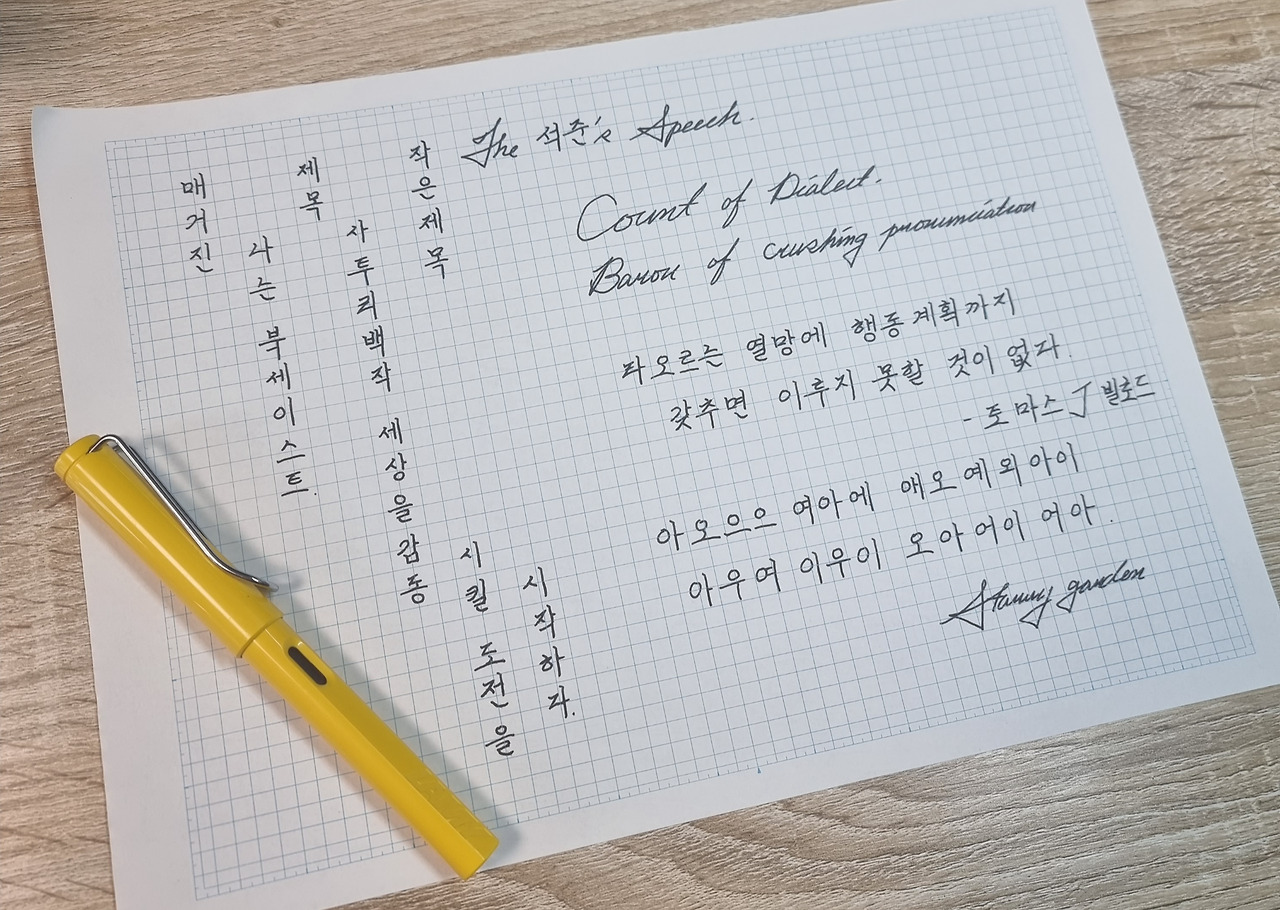 매거진
나는 부세이스트.
제목
사투리백작 세상을 감동
시킬 도전을
시작하다.
작은제목
The 석준's Speech.
Count of Dialect.
Baron of crushing pronunciation
타오르는 열망에 행동계획까지
갖추면 이루지 못할 것이 없다
- 토마스 J 빌로드
아오으으 여아에 애오예외아이
아우여 이우이 오아어이 어아.
Starry garden